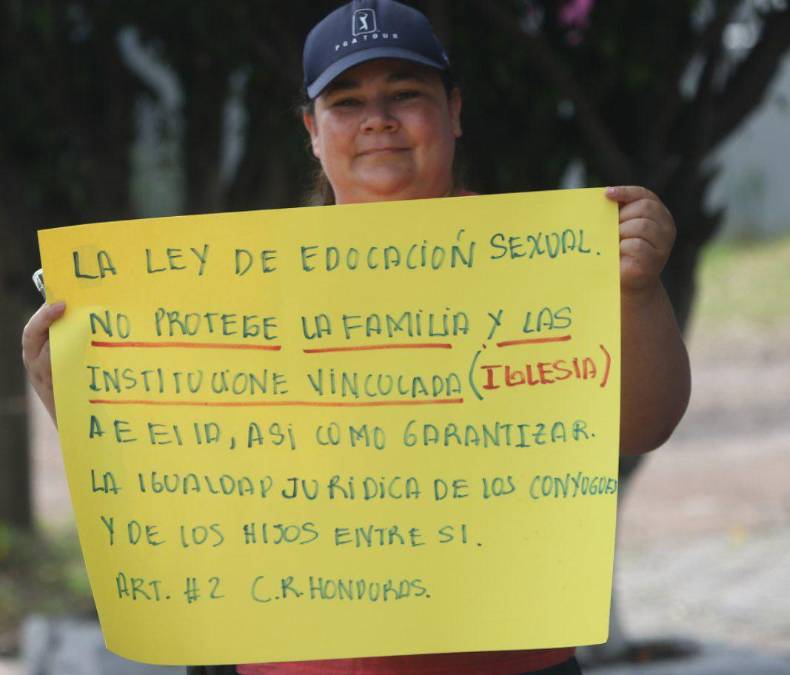 PGA TOUR
LA LEY DE EDOCACIÓN SEXUAL.
NO PROTEGE LA FAMILIA Y LAS
INSTITUCIONE VINCULADA (IGLESIA)
A E EllA, ASi COMO GARANTIZAR.
LA IGUALDAD JURIDICA DE LOS CONYUGUES
Y DE LOS HIJOS ENTRE SI.
ART. #2 C.R. HONDURAS.